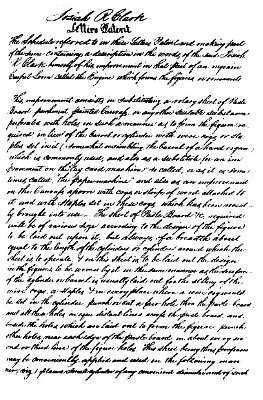 Josiah R Clark
Letters Patent
The Schedule referred to in these Letters Patent and making part
of the same containing a description in the words of the said Josiah
R Clark himself of his improvement in that part of an ingrain
Carpet Loom called the Engine which forms the figures or ornaments
His improvement consists in substituting a rotary sheet of Paste
Board parchment painted Canvass or any other suitable substance
perforated with holes in such a manner as to form the figure
required in lieu of the barrel or cylinder with cogs or sta-
ples set in it (somewhat resembling the barrel of a hand organ)
which is commonly used and also as a substitute for an im
called The and also as an improvement
on the Canvass apron with cogs or strips of wood attached to
it and with staples set in these cogs which has been
ly brought into use The sheet of Paste Board &c required
will be of various size according to the designs of the figures
to be laid out upon it but always of a breadth about
equal to the length of the cylinders or cylinder around which the
sheet is to operate & on this sheet is to be laid out the design
in the figure to be woven by it in the same manner as the
of the cylinder or barrel is usually laid out for the setting of the
cogs & staples In every place where a cog required
to be set in the cylinder punch or cut a hole thro the paste board
and all these holes in equi distant lines across the paste board and
beside the holes which are laid out to form the figure punch
other holes near each edge of the paste board in about every
or third line of the figure holes This sheet being thus
may be conveniently applied and used in the following man
ner, viz, place cylinder of any convenient diameter and of such